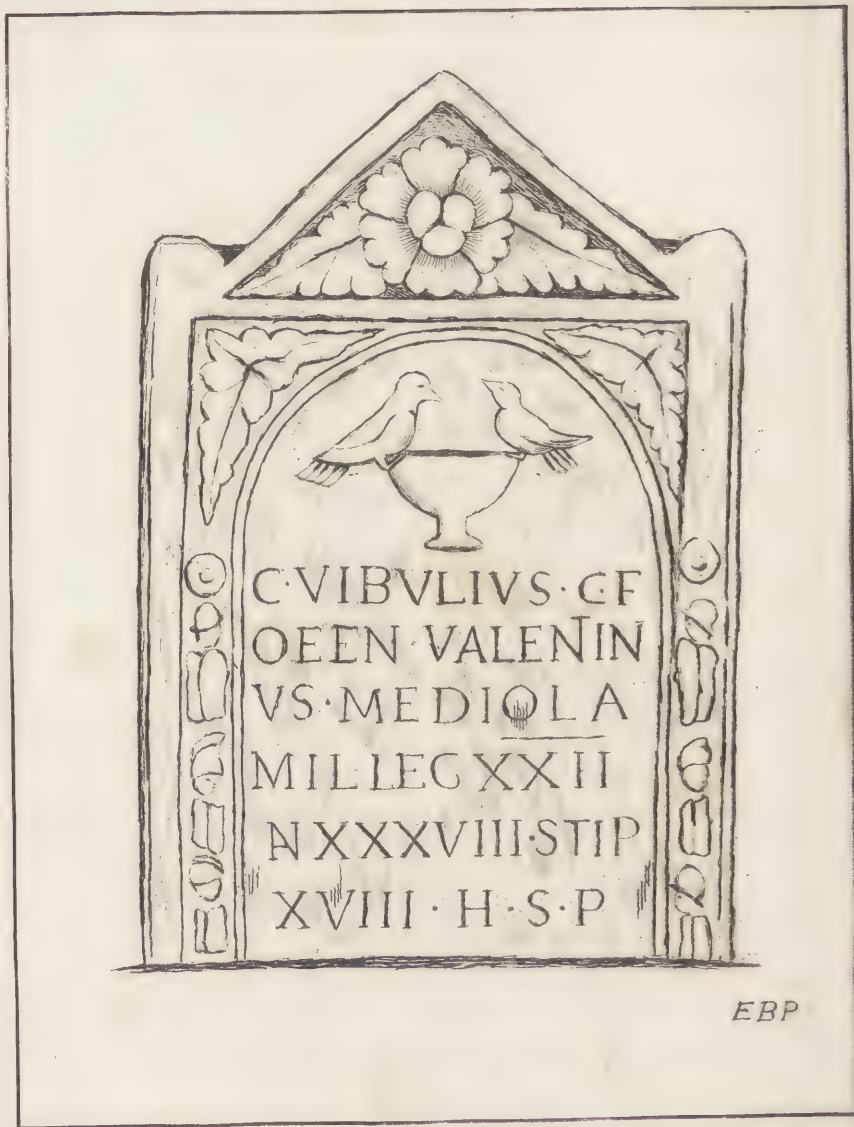 C·VIBVLIVS·C·F
OEEN·VALENTIN
VS·MEDIOLA
MIL LEG XXII
N XXXVIII·STIP
XVIII·H·S·P
EBP